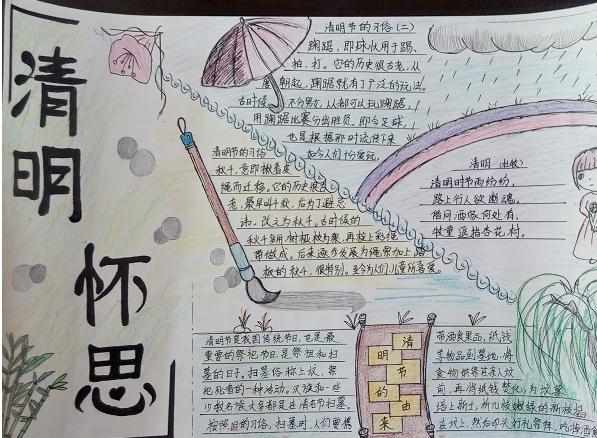 清明
怀思
清明节的习俗（二）
蹴鞠，即球状用于踢、
拍、打。它的历史很古老，从
唐朝起，蹴鞠就有了广泛的玩法。
古时候，不分男女，人都可以玩蹴鞠，
用蹴鞠比赛分岀胜负，即今足球，
也是根据那时流传下来
如今人们十分爱玩。
清明节的习俗
秋千，意即揪着皮
绳而迁移。它的历史很古
老，最早叫千秋，后为了避忌
讳，改之为秋千。古时候的
秋千多用树桠枝为架，再拴上彩带
带做成，后来逐步发展为绳索加上踏
板的秋千，很特别。至今为人们、儿童所喜爱。
清明（杜牧）
清明时节雨纷纷，
路上行人欲断魂。
借问酒家何处有，
牧童遥指杏花村。
清明节是我国传统节日，也是最
重要的祭祀节日是祭祖和扫
墓的日子。扫墓俗称上坟，祭
祀死者的一种活动。汉族和一些
少数民族大多都是在清明节扫墓。
按照旧的习俗，扫墓时，人们要携
清明节的由来
带酒食果品，纸钱
等物品到墓地，将
食物供祭在亲人坟
前，再将纸钱焚化，为坟墓
培上新土，折几枝嫩绿的新枝插
在坟上，然后叩头行礼祭拜，